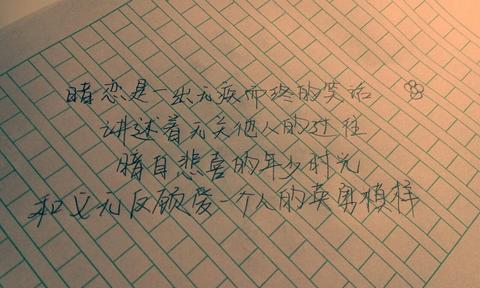 暗恋是一出无疾而终的笑话
讲述着无关他人的过往
暗自悲喜的年少时光
和义无反顾爱一个人的英勇模样